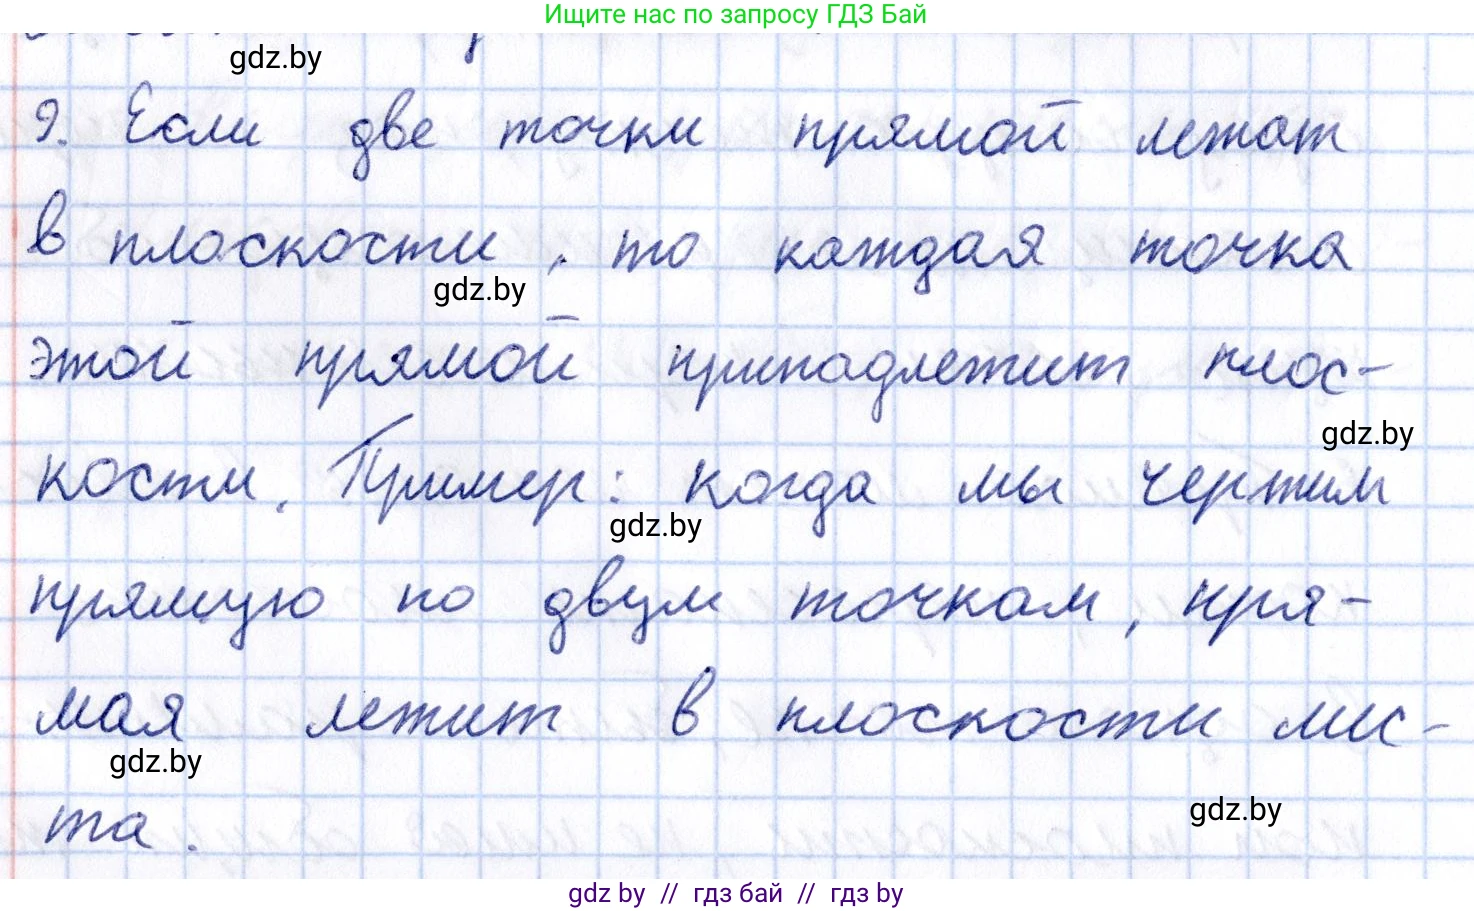 Ищите нас по запросу ГДЗ Бай
gdz.by
9. Если две точки прямой лежат
в плоскости, то каждая точка
gdz.by
этой прямой принадлежит плос-
gdz.by
кости. Пример: когда мы чертим
gdz.by
прямую по двум точкам, пря-
мая лежит в плоскости лис-
gdz.by
та.
gdz.by
gdz by // гдз бай // гдз by